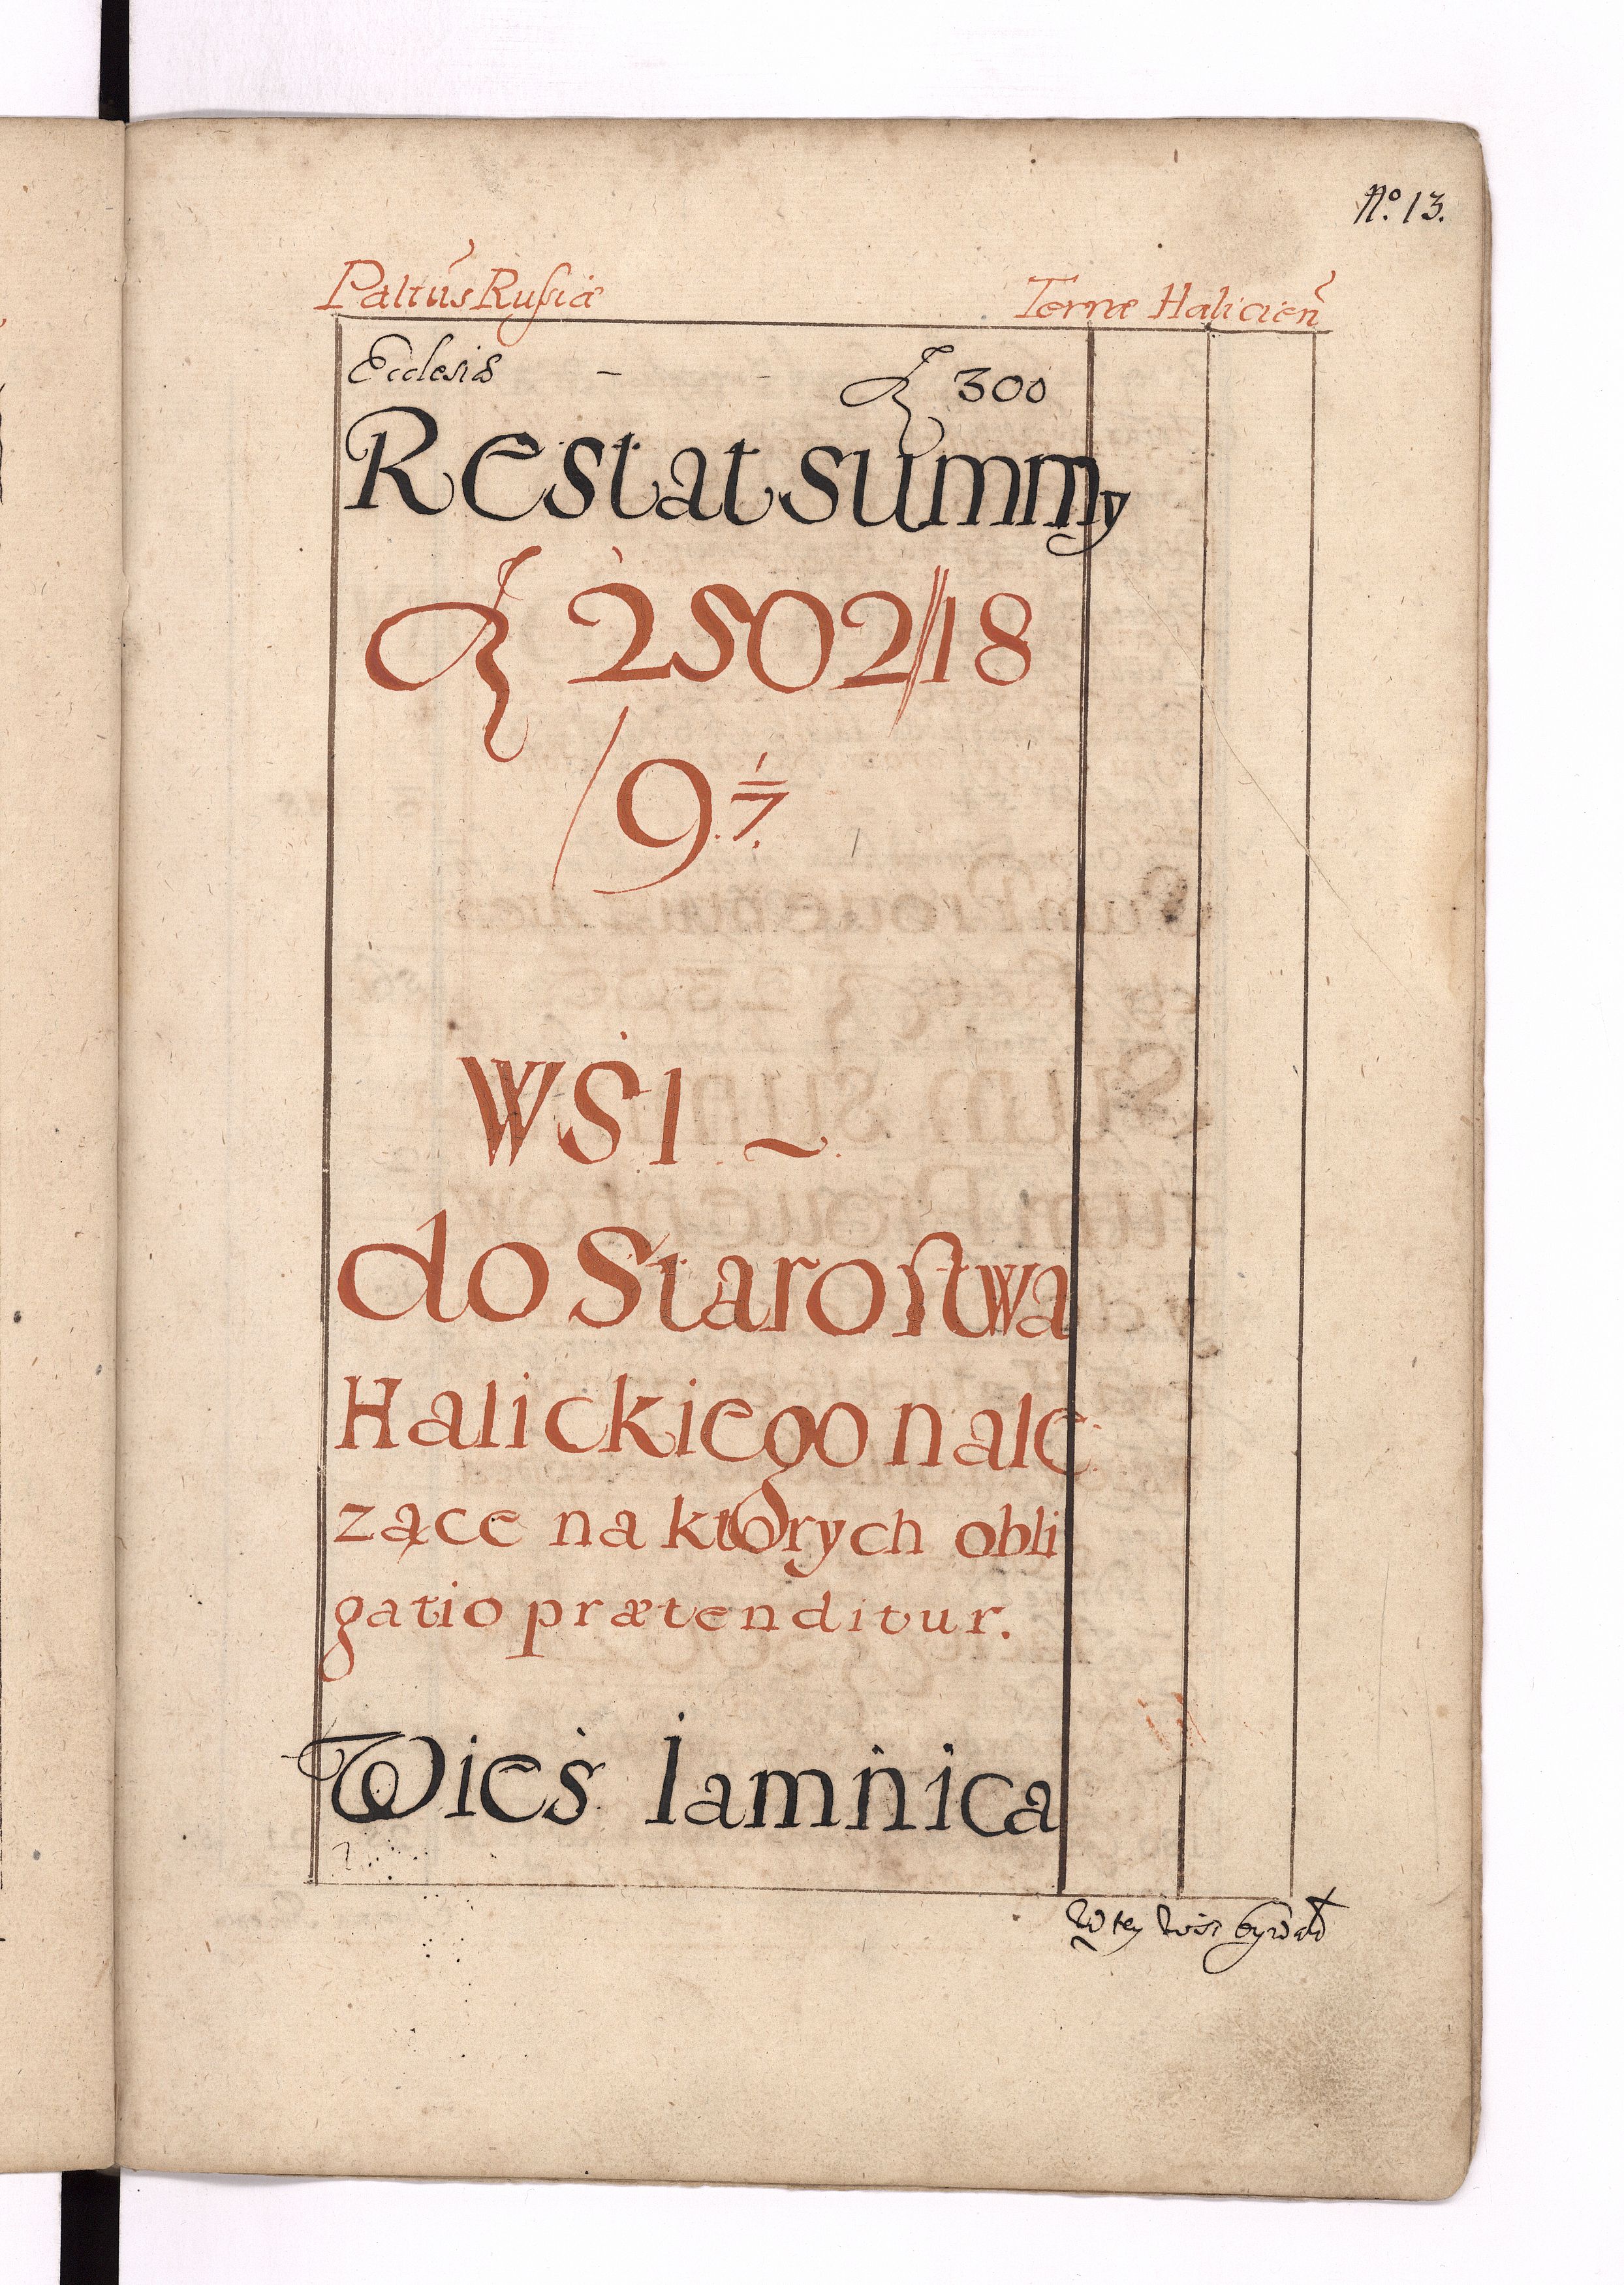 No. 13.
Paltus Russiæ Terræ Halicien
Ecclesiæ - - fl 300
Restat summy
fl 2502//18
/9 1/7.
WSI ~
do Starostwa
Halickiego nale
zące na ktorych obli
gatio prætenditur.
Wieś Jamnica
W tey wsi bywał